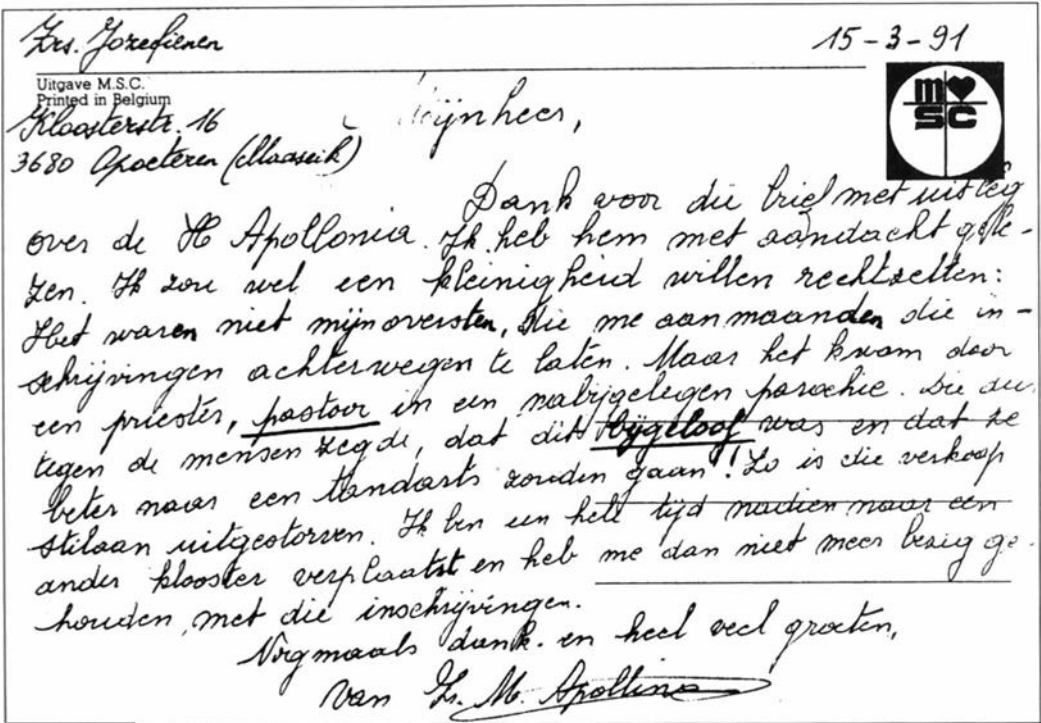 Zrs. Jozefienen
15-3-91
Uitgave M.S.C.
Printed in Belgium
m♥
SC
Kloosterstr. 16
3680 Opoeteren (Maaseik)
Mijnheer,
Dank voor die brief met uitleg
over de H Apollonia. Ik heb hem met aandacht gele-
zen. Ik zou wel een kleinigheid willen rechtzetten:
Het waren niet mijn oversten, die me aanmaanden die in-
schrijvingen achterwegen te laten. Maar het kwam door
een priester, pastoor in een nabijgelegen parochie. Die
tegen de mensen zegde, dat dit bijgeloof was en dat ze
beter naar een tandarts zouden gaan! Zo is die verkoop
stilaan uitgestorven. Ik ben een hele tijd nadien naar een
ander klooster verplaatst en heb me dan niet meer bezig ge-
houden, met die inschrijvingen.
Nogmaals dank. en heel veel groeten,
van Zr. M. Apollina